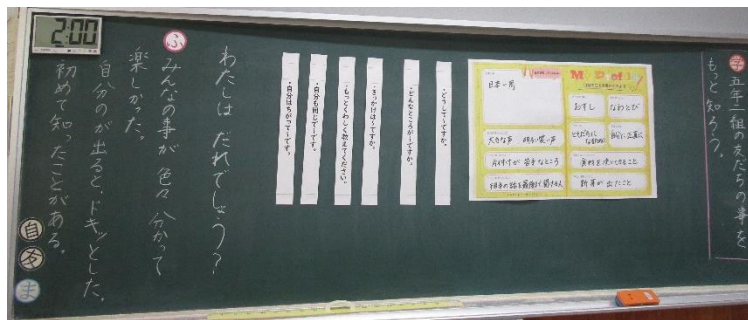 学 五年二組の友だちの事を
もっと知ろう。
My Profile
日本一周
おすし
なわとび
大きな声 明るい笑い声
片付けが苦手なところ
相手の話を最後まで聞ける人
新芽が出たこと
・どうして~ですか。
・どんなところが~ですか。
・きっかけは~ですか。
・もっとくわしく教えてください。
・自分も同じで~です。
・自分はちがって~です。
わたしは だれでしょう?
ふ みんなの事が 色々 分かって
楽しかった。
自分のが出ると、ドキッとした。
初めて知ったことがある。
2:00
自
友
ま